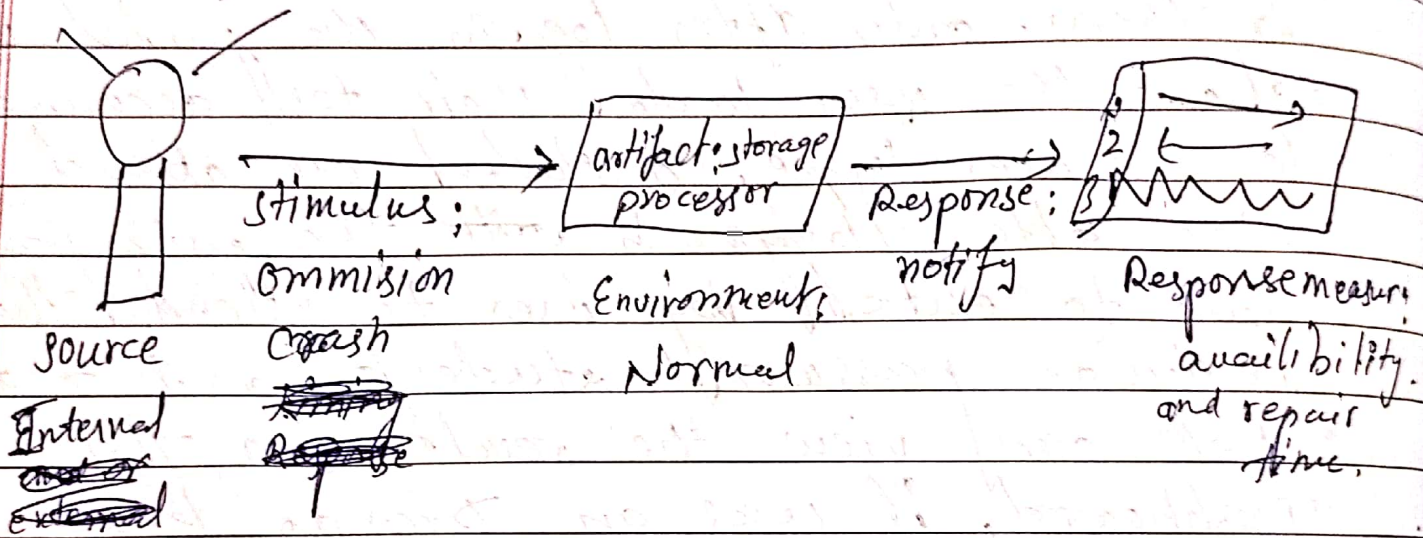 source
Internal
stimulus;
ommision
crash
artifact: storage
processor
Environment:
Normal
Response:
notify
1
2
3
Response measur:
availibility
and repair
time.